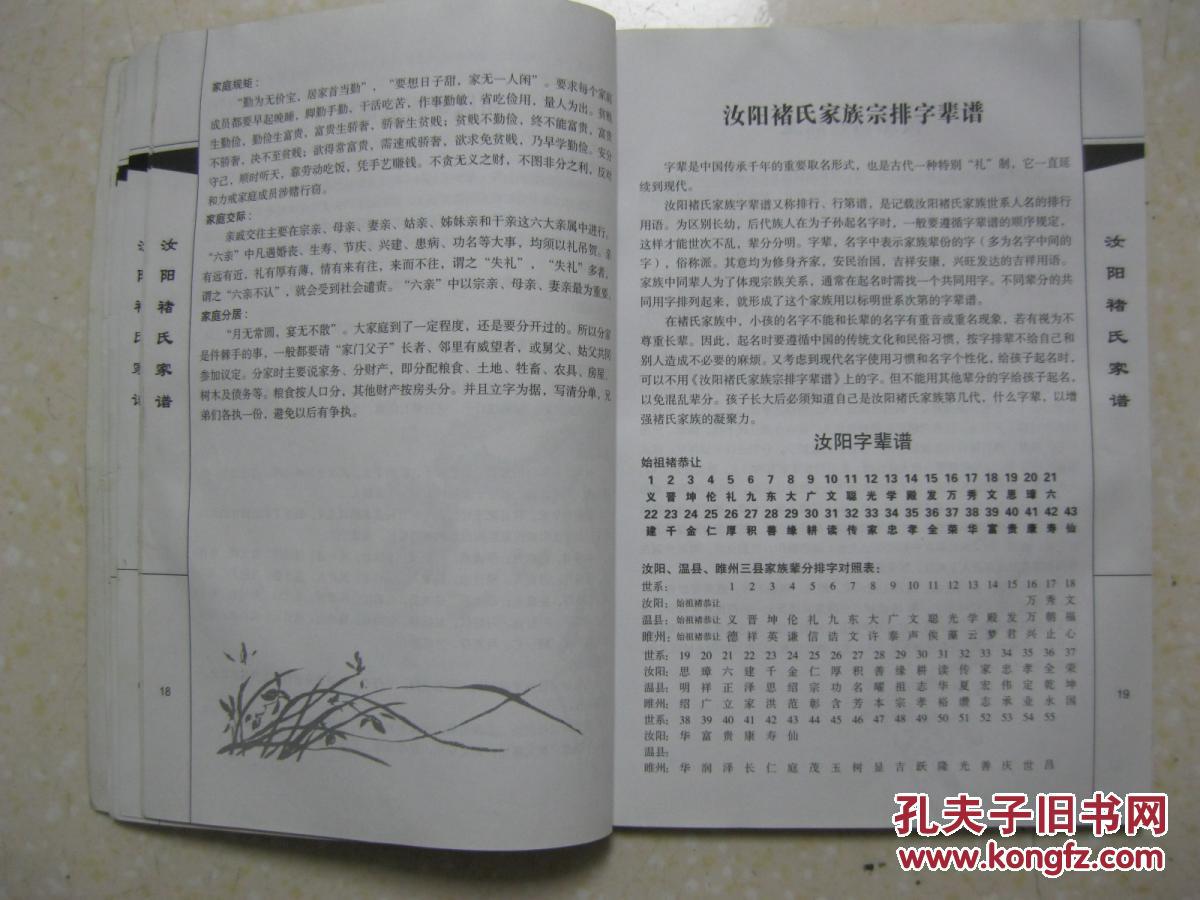 家庭规矩：
“勤为无价宝，居家首当勤”，“要想日子甜，家无一人闲”。要求每个家庭
成员都要早起晚睡，脚勤手勤、干活吃苦，作事勤敏，省吃俭用，量人为出。贫贱
生勤俭，勤俭生富贵，富贵生骄奢，骄奢生贫贱；贫贱不勤俭，终不能富贵，富贵
不骄奢，决不至贫贱；欲得常富贵，需速戒骄奢，欲求免贫贱，乃早学勤俭。安分
守己，顺时听天，靠劳动吃饭，凭手艺赚钱。不贪无义之财，不图非分之利，反对
和力戒家庭成员涉赌行窃。
家庭交际：
亲戚交往主要在宗亲、母亲、妻亲、姑亲、姊妹亲和干亲这六大亲属中进行。
“六亲”中凡遇婚丧、生寿、节庆、兴建、患病、功名等大事，均须以礼吊贺。亲
有远有近，礼有厚有薄，情有来有往，来而不往，谓之“失礼”，“失礼”多者，
谓之“六亲不认”，就会受到社会谴责。“六亲”中以宗亲、母亲、妻亲最为重要。
家庭分居：
“月无常圆，宴无不散”。大家庭到了一定程度，还是要分开过的。所以分家
是件棘手的事，一般都要请“家门父子”长者、邻里有威望者，或舅父、姑父共同
参加议定。分家时主要说家务、分财产，即分配粮食、土地、牲畜、农具、房屋、
树木及债务等。粮食按人口分，其他财产按房头分。并且立字为据，写清分单，兄
弟们各执一份，避免以后有争执。
汝阳褚氏家谱
18
汝阳褚氏家族宗排字辈谱
字辈是中国传承千年的重要取名形式，也是古代一种特别“礼”制，它一直延
续到现代。
汝阳褚氏家族字辈谱又称排行、行第谱，是记载汝阳褚氏家族世系人名的排行
用语。为区别长幼，后代族人在为子孙起名字时，一般要遵循字辈谱的顺序规定，
这样才能世次不乱，辈分分明。字辈，名字中表示家族辈份的字（多为名字中间的
字），俗称派。其意均为修身齐家，安民治国，吉祥安康，兴旺发达的吉祥用语。
家族中同辈人为了体现宗族关系，通常在起名时需找一个共同用字。不同辈分的共
同用字排列起来，就形成了这个家族用以标明世系次第的字辈谱。
在褚氏家族中，小孩的名字不能和长辈的名字有重音或重名现象，若有视为不
尊重长辈。因此，起名时要遵循中国的传统文化和民俗习惯，按字排辈不给自己和
别人造成不必要的麻烦。又考虑到现代名字使用习惯和名字个性化，给孩子起名时，
可以不用《汝阳褚氏家族宗排字辈谱》上的字。但不能用其他辈分的字给孩子起名，
以免混乱辈分。孩子长大后必须知道自己是汝阳褚氏家族第几代，什么字辈，以增
强褚氏家族的凝聚力。
汝阳字辈谱
始祖褚恭让
1 2 3 4 5 6 7 8 9 10 11 12 13 14 15 16 17 18 19 20 21
义 晋 坤 伦 礼 九 东 大 广 文 聪 光 学 殿 发 万 秀 文 思 璋 六
22 23 24 25 26 27 28 29 30 31 32 33 34 35 36 37 38 39 40 41 42 43
建 千 金 仁 厚 积 善 缘 耕 读 传 家 忠 孝 全 荣 华 富 贵 康 寿 仙
汝阳、温县、睢州三县家族辈分排字对照表：
世系： 1 2 3 4 5 6 7 8 9 10 11 12 13 14 15 16 17 18
汝阳：始祖褚恭让 万 秀 文
温县：始祖褚恭让 义 晋 坤 伦 礼 九 东 大 广 文 聪 光 学 殿 发 万 朝 福
睢州：始祖褚恭让 德 祥 英 谦 信 诰 文 许 泰 声 俟 藻 云 梦 君 兴 止 心
世系：19 20 21 22 23 24 25 26 27 28 29 30 31 32 33 34 35 36 37
汝阳：思 璋 六 建 千 金 仁 厚 积 善 缘 耕 读 传 家 忠 孝 全 荣
温县：明 祥 正 泽 思 绍 宗 功 名 耀 祖 志 华 夏 宏 伟 定 乾 坤
睢州：绍 广 立 家 洪 范 彰 含 芳 本 宗 孝 裕 缵 志 承 业 永 国
世系：38 39 40 41 42 43 44 45 46 47 48 49 50 51 52 53 54 55
汝阳：华 富 贵 康 寿 仙
温县：
睢州：华 润 泽 长 仁 庭 茂 玉 树 显 吉 跃 隆 光 善 庆 世 昌
汝阳褚氏家谱
19
孔夫子旧书网
www.kongfz.com